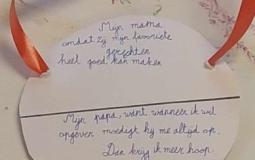 Mijn mama
omdat zij mijn favoriete
gerechten
heel goed kan maken
Mijn papa, want wanneer ik wil
opgeven moedigt hij me altijd op.
Dan krijg ik meer hoop.